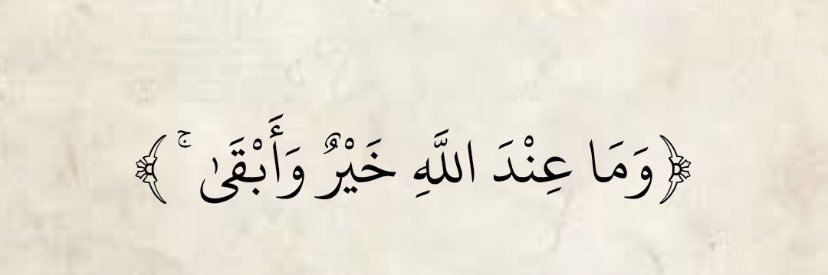 ﴿وَمَا عِنْدَ اللَّهِ خَيْرٌ وَأَبْقَىٰ ۚ ﴾